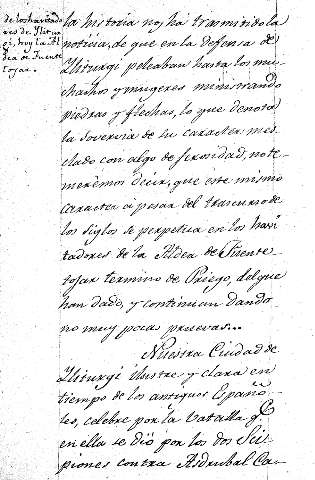 de los havitado
res de Yliturgi
gi, hoy la Al
dea de Fuente
tojar.
la historia nos ha trasmitido la
noticia, de que en la defensa de
Yliturgi peleaban hasta los mu-
chachos y mugeres ministrando
piedras y flechas, lo que denota
la sovervia de su caracter mes-
clado con algo de ferosidad, no te-
meremos decir, que este mismo
caracter á pesar del trascurso de
los siglos se perpetua en los havi-
tadores de la Aldea de Fuente-
tojar termino de Priego, del que
han dado, y continuan dando-
no muy pocas pruevas...
Nuestra Ciudad de
Yliturgi ilustre y clara en
tiempo de los antiguos Españo-
les, celebre por la vatalla q.e
en ella se dió por los dos Sci-
piones contra Asdrubal Ca-